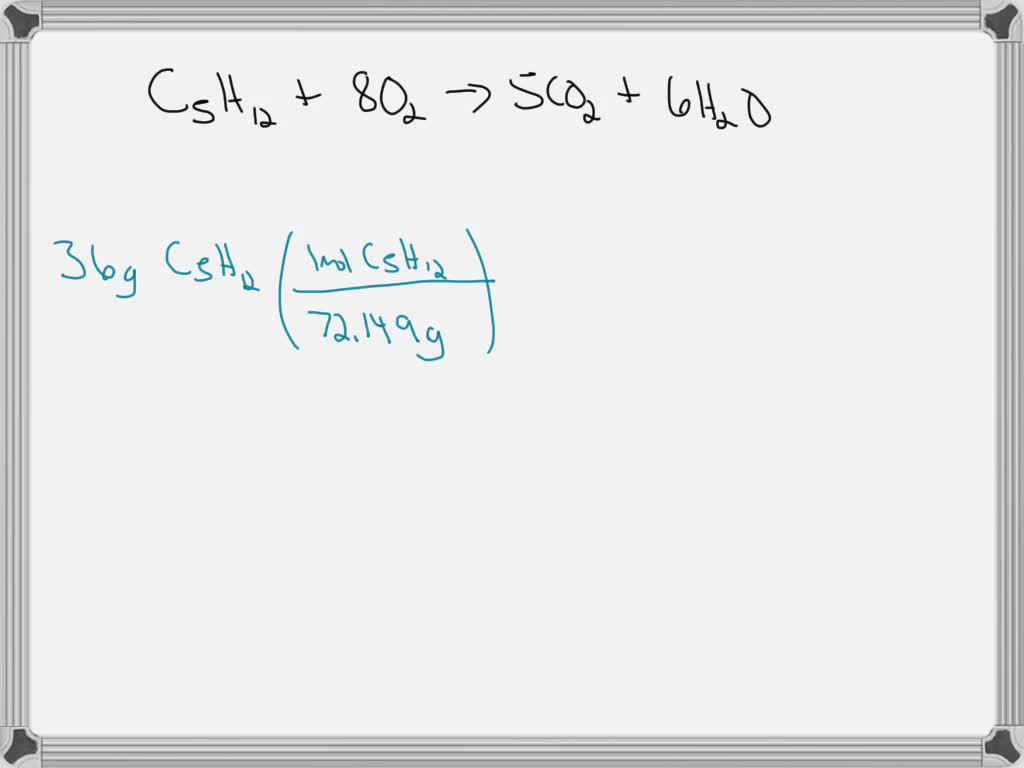 C₅H₁₂ + 8O₂ → 5CO₂ + 6H₂O
36g C5H₁₂ (1mol C5H₁₂ / 72.149g)